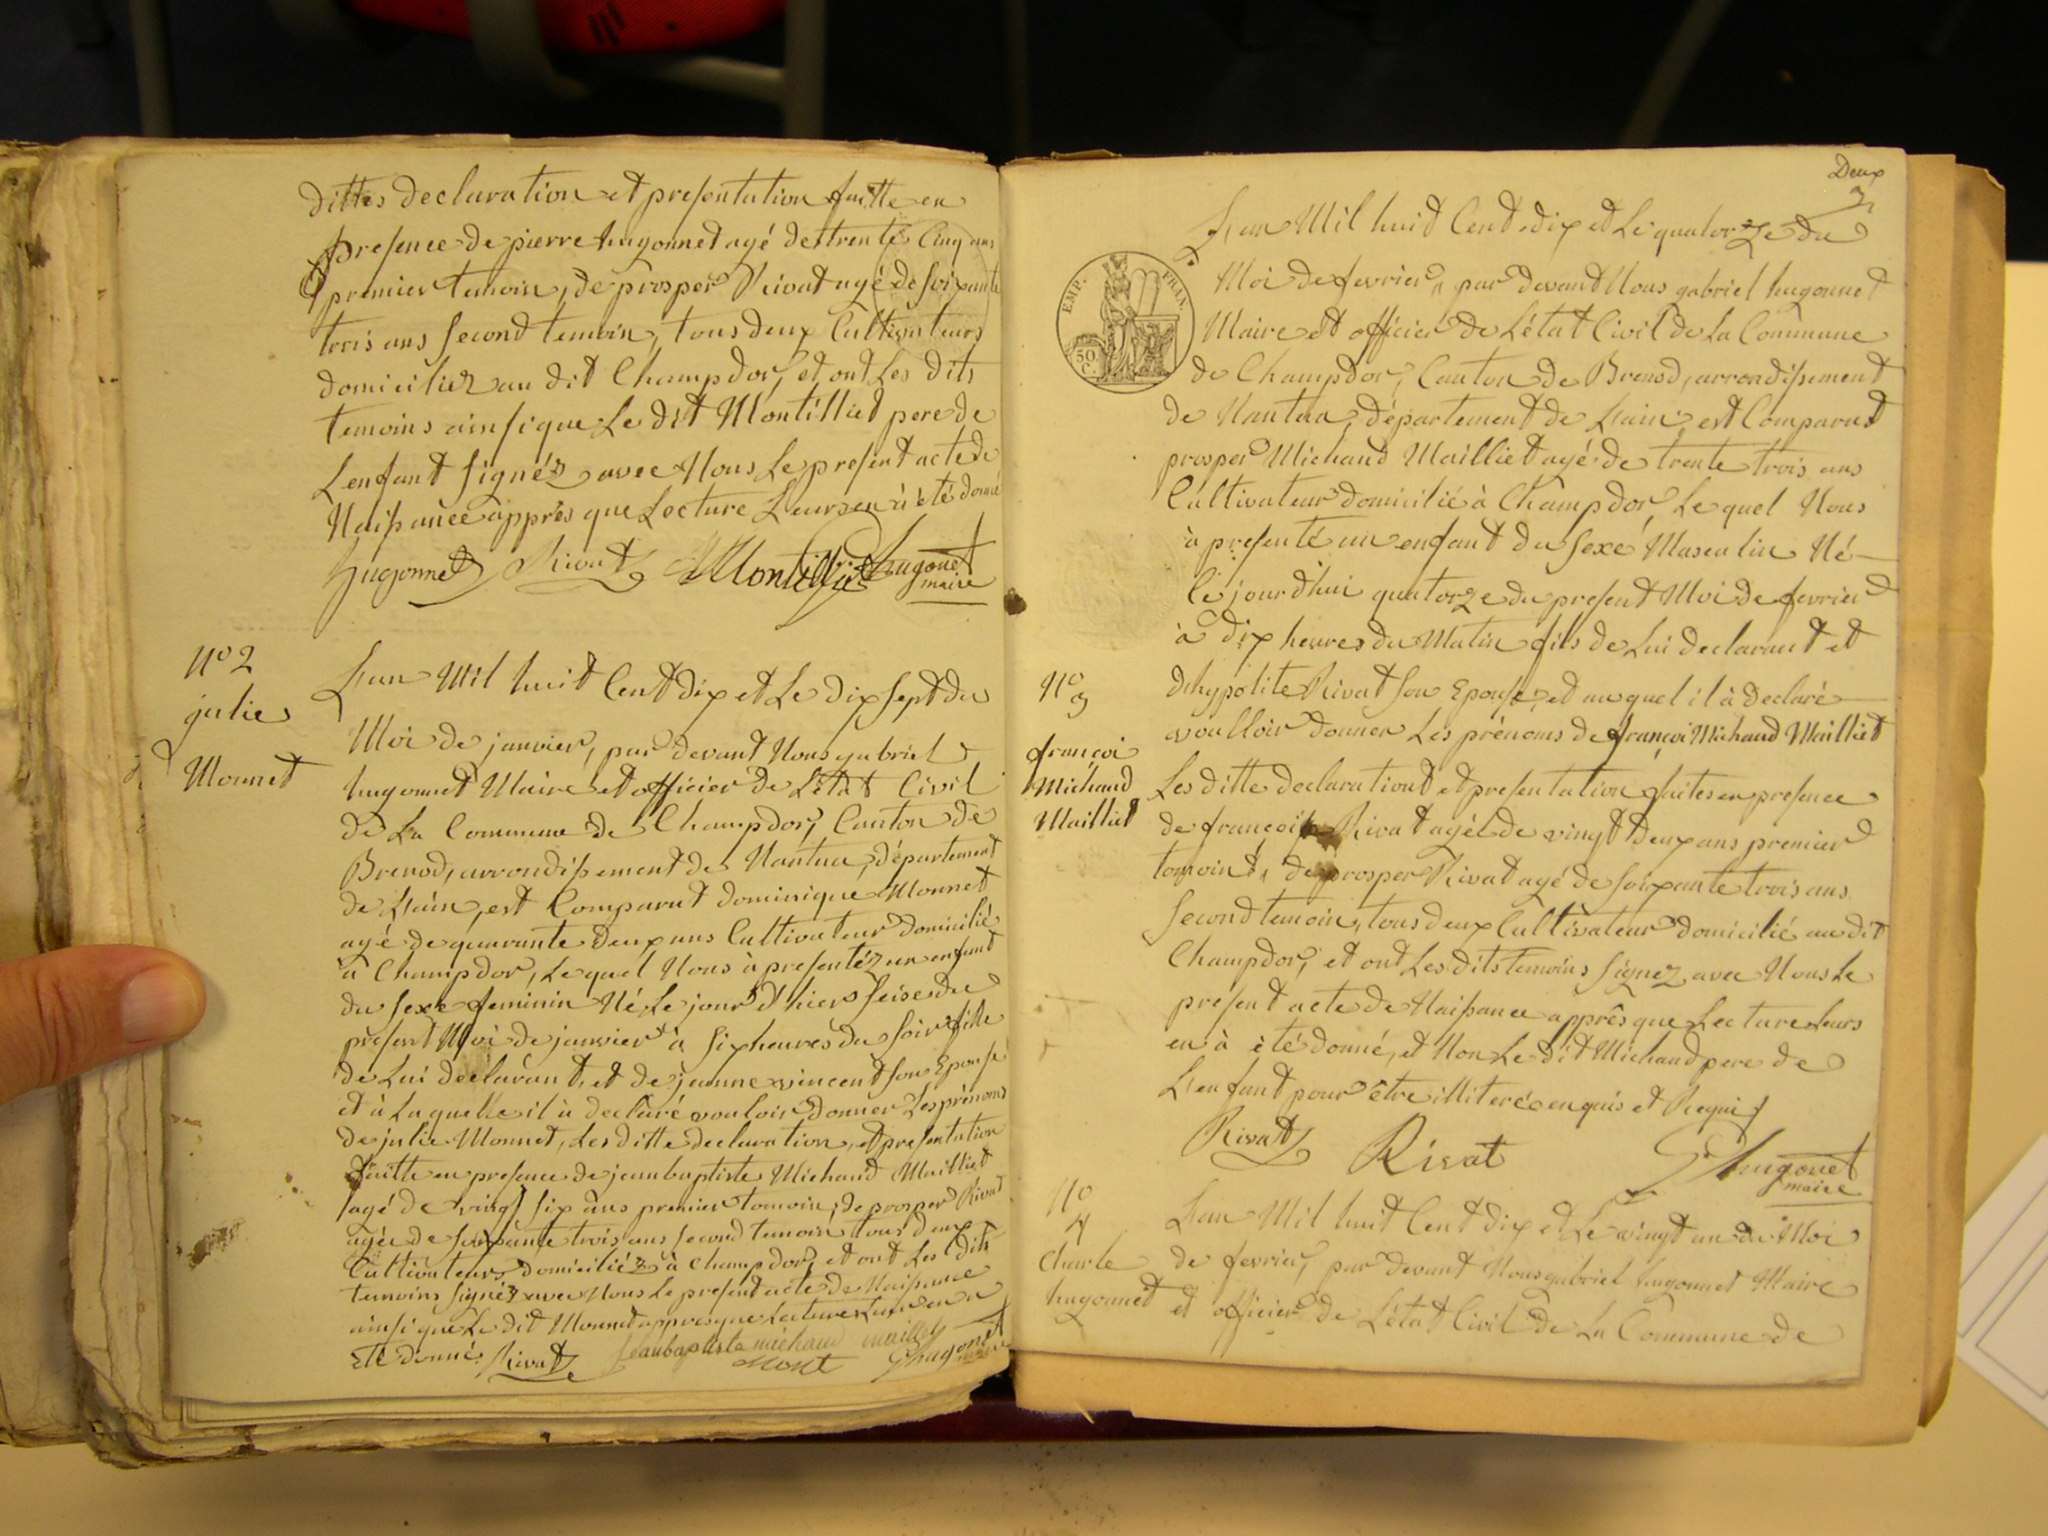 dittes declaration et presentation faitte en
presence de pierre hugonnet agé de trente Cinq ans
premier temoin, de prosper Rivat agé de soixante
trois ans second temoin, tous deux Cultivateurs
domiciliez au dit Champdor, et ont Les dits
temoins ainsi que Le dit Montilliet pere de
Lenfant signéz avec Nous Le present acte de
Naissance apprès que Lecture Leurs en à été donné
hugonnet Rivat Montilliet hugonet
maire
N° 2
julie
Monnet
Lan Mil huit Cent dix et Le dix sept du
Moi de janvier, par devant Nous gabriel
hugonnet Maire et officier de Létat Civil
de La Commune de Champdor, Canton de
Brenod, arrondissement de Nantua, département
de Lain, est Comparut dominique Monnet
agé de quarante deux ans Cultivateur domicilié
a Champdor, Le quel Nous à presentéz un enfant
du sexe feminin Né Le jour d'hier seise du
present Moi de janvier à six heures du soir fille
de Lui déclarant, et de jeanne vincent son Epouse
et à La quelle il à declaré vouloir donner Les prénoms
de julie Monnet, Les ditte declaration, et presentation
faitte en presence de jean baptiste Michaud Mailliet
agé de vingt six ans premier temoin, de prosper Rivat
agée de soixante trois ans second temoin tous deux
Cultivateurs domiciliéz à Champdor, et ont Les dits
temoins signéz avec Nous Le present acte de Naissance
ainsi que Le dit Monnet appres que Lecture Leur en a
été donné. Rivat Jeanbaptiste michaud mailliet
Mont Ghugonet
maire
Deux
2
EMP. FRAN.
50 C.
Lan Mil huit Cent dix et Le quatorze du
Moi de fevrier, par devant Nous gabriel hugonnet
Maire et officier de L'état Civil de La Commune
de Champdor, Canton de Brenod, arrondissement
de Nantua, département de Lain, est Comparut
prosper Michaud Mailliet agé de trente trois ans
Cultivateur domicilié à Champdor, Le quel Nous
à presenté un enfant du sexe Masculin Né
Le jourd'hui quatorze du present Moi de fevrier
à dix heures du Matin fils de Lui declarant et
dhypolite Rivat son Epouse, et au quel il à declaré
voulloir donner Les prénoms de françoi Michaud Mailliet
N°
3
françoi
Michaud
Mailliet
Les ditte declarationt et presentation faites en presence
de françois Rivat agé de vingt deux ans premier
temoint, de prosper Rivat agé de soixante trois ans
second temoin, tous deux Cultivateur domicilié au dit
Champdor, et ont Les dits temoins signez avec Nous Le
present acte de Naissance apprês que Lecture Leurs
en à été donné, et Non Le dit Michaud pere de
Lenfant pour être illiteré enquis et Requis
Rivat Rivat Ghugonet
maire
N°
4
Charle
hugonnet
Lan Mil huit Cent dix et Le vingt un du Moi
de fevrier, par devant Nous gabriel hugonnet Maire
et officier de L'état Civil de La Commune de